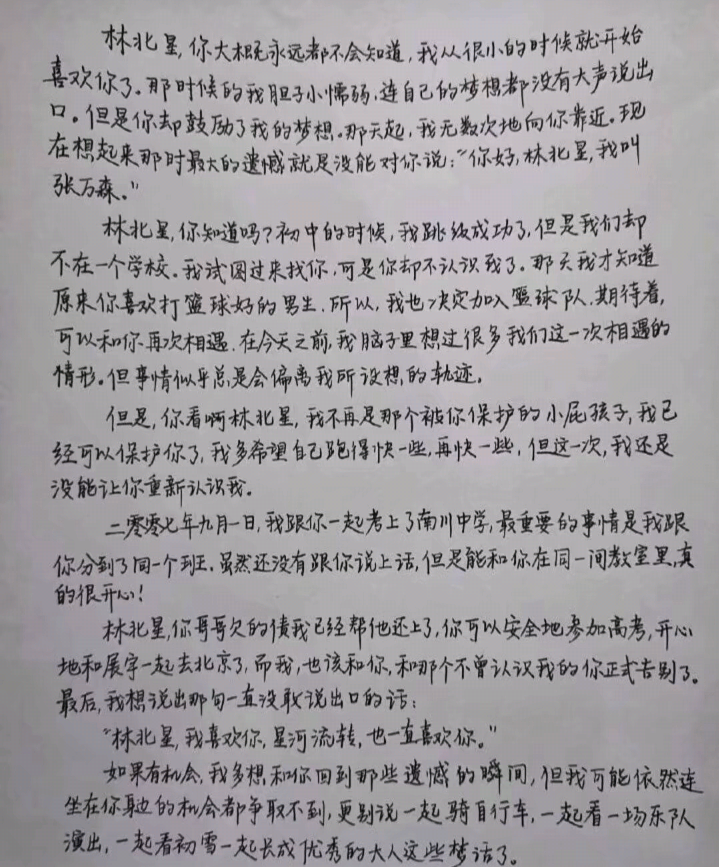 林北星,你大概永远都不会知道,我从很小的时候就开始
喜欢你了。那时候的我胆子小懦弱,连自己的梦想都没有大声说出
口。但是你却鼓励了我的梦想。那天起,我无数次地向你靠近。现
在想起来那时最大的遗憾就是没能对你说:“你好,林北星,我叫
张万森。”
林北星,你知道吗?初中的时候,我跳级成功了,但是我们却
不在一个学校。我试图过来找你,可是你却不认识我了。那天我才知道
原来你喜欢打篮球好的男生.所以,我也决定加入篮球队.期待着,
可以和你再次相遇.在今天之前,我脑子里想过很多我们这一次相遇的
情形。但事情似乎总是会偏离我所设想的轨迹。
但是,你看啊林北星,我不再是那个被你保护的小屁孩子,我已
经可以保护你了,我多希望自己跑得快一些,再快一些,但这一次,我还是
没能让你重新认识我。
二零零七年九月一日,我跟你一起考上了南川中学,最重要的事情是我跟
你分到了同一个班.虽然还没有跟你说上话,但是能和你在同一间教室里,真
的很开心!
林北星,你哥哥欠的债我已经帮他还上了,你可以安全地参加高考,开心
地和展宇一起去北京了,而我,也该和你,和那个不曾认识我的你正式告别了。
最后,我想说出那句一直没敢说出口的话:
“林北星,我喜欢你,星河流转,也一直喜欢你。”
如果有机会,我多想和你回到那些遗憾的瞬间,但我可能依然连
坐在你身边的机会都争取不到,更别说一起骑自行车,一起看一场乐队
演出,一起看初雪一起长成优秀的大人这些梦话了。